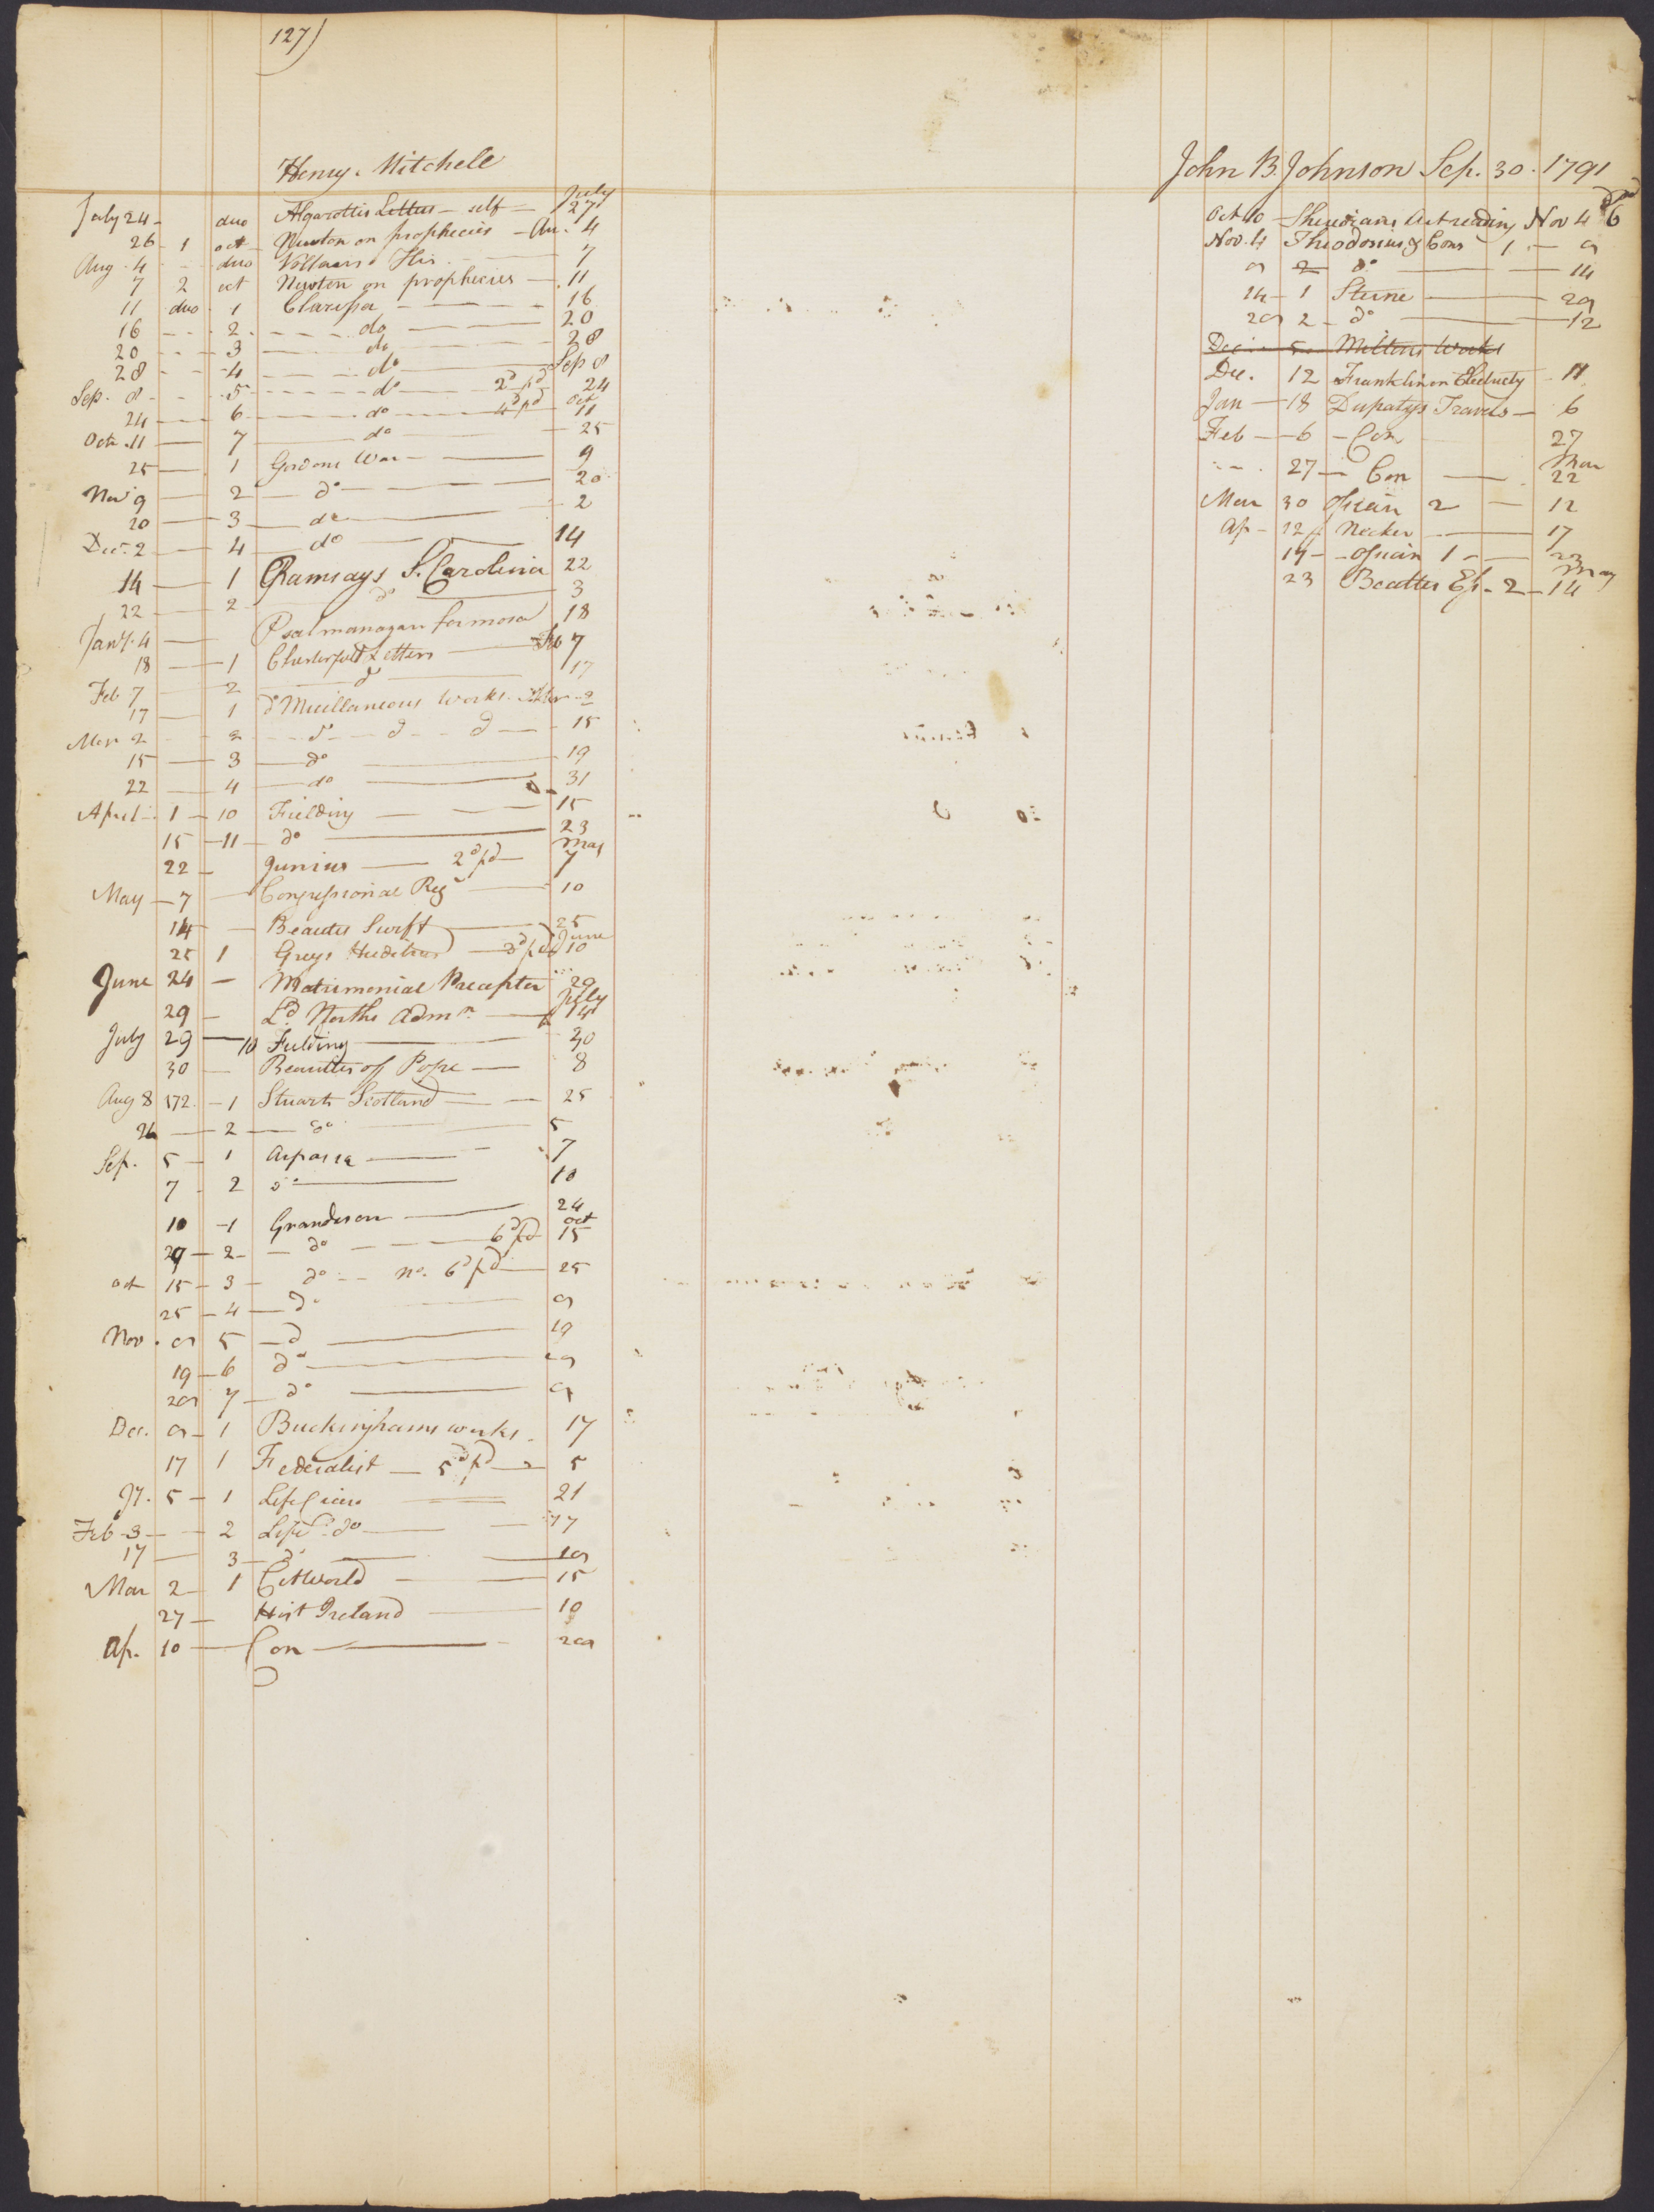 127)
Henry Mitchell
July 24 - duo Algarottis Letters - self - July 27
26 - 1 oct Newton on prophecies - Au. 4
Aug. 4 - duo Voltairs His. - 7
7 2 oct Newton on prophecies - 11
11 duo 1 Clarissa - 16
16 - 2 - do - 20
20 - 3 - do - 28
28 - 4 - do - Sep 8
Sep. 8 - 5 - do - 2d pd 24
24 - 6 - do - 4d pd Oct 11
Octr. 11 - 7 - do - 25
25 - 1 Gordons War - 9
Nov 9 - 2 - do - 20
20 - 3 - do - 2
Decr. 2 - 4 - do - 14
14 - 1 Ramsays S. Carolina 22
22 - 2 - do - 3
Jany. 4 - Psalmanazars formosa 18
18 - 1 Chesterfield Letters - Feb 7
Feb 7 - 2 - do - 17
17 - 1 do Micillaneous Works. Mar - 2
Mar 2 - 2 - do - d - d - 15
15 - 3 - do - 19
22 - 4 - do - 31
April 1 - 10 Fielding - 15
15 - 11 - do - 23
22 - Junius - 2d pd - May 7
May - 7 - Congressional Regr - 10
14 - Beauties Swift - 25
25 1 Greys Hudibras - 3d pd June 10
June 24 - Matrimonial Precepter 29
29 - Ld. Norths Admn. - July 14
July 29 - 10 Fielding - 30
30 - Beautties of Pope - 8
Aug 8 172 - 1 Stuarts Scotland - 25
26 - 2 - do - 5
Sep. 5 - 1 Aspasia - 7
7 - 2 do - 10
10 - 1 Grandison - 24
29 - 2 - do - 6d pd Oct 15
oct 15 - 3 - do - no. 6d pd - 25
25 - 4 - do - 9
Nov. 9 5 - d - 19
19 - 6 do - 29
29 7 - do - 9
Dec. 9 - 1 Buckinghams works - 17
17 1 Federalist - 5d pd - 5
Jy. 5 - 1 Life Cicero - 21
Feb 3 - 2 Life do - 17
17 - 3 - do - 19
Mar 2 - 1 Cit World - 15
27 - Hist Ireland - 10
Ap. 10 - Con - 29
John B. Johnson Sep. 30. 1791
Oct 10 - Sheridians Art reading Nov 4 6
Nov. 4 Theodosius & Cons - 1 - 9
9 2 do - 14
14 - 1 Sterne - 29
29 2 - do - 12
Dec - 5 - Miltons Works
Dec. 12 Franklin on Electricity - 11
Jan - 18 Dupatys Travels - 6
Feb - 6 - Con 27
27 - Con - Mar 22
Mar 30 Ossian 2 - 12
Ap - 12 Necker - 17
17 - Ossian 1 - 23
23 Beatties Es. - 2 - May 14